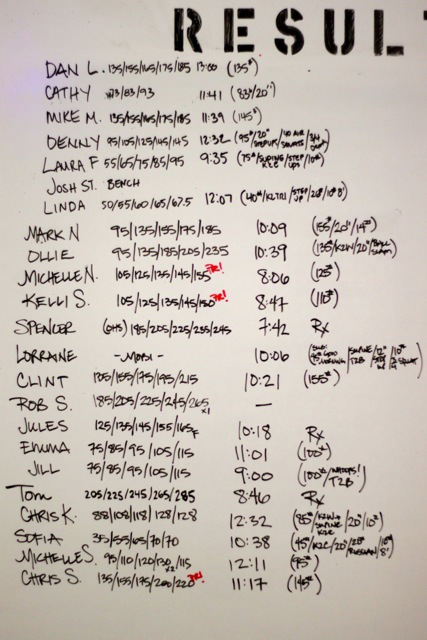 RESUL
DAN L. 135/155/165/175/185 13:00 (135#)
CATHY 73/83/93 11:41 (83#/20")
MIKE M. 135/155/165/175/185 11:39 (145#)
DENNY 95/105/125/145/145 12:32 (95#/20"
LAURA F 55/65/75/85/95 9:35 (75#/
JOSH ST. BENCH
LINDA 50/55/60/65/67.5 12:07 (40#/
MARK N 95/135/155/175/185 10:09 (155#/20"/14#)
OLLIE 95/135/185/205/235 10:39 (135#/K2W/20"/BALL SLAM)
MICHELLE N. 105/125/135/145/155 PR! 8:06 (125#)
KELLI S. 105/125/135/145/150 PR! 8:47 (110#)
SPENCER 185/205/225/235/245 7:42 Rx
LORRAINE -MOBI- 10:06
CLINT 135/155/175/195/215 10:21 (155#)
ROB S. 185/205/225/245/265 x1 —
JULES 125/135/145/155/165F 10:18 Rx
EMMA 75/85/95/105/115 11:01 (100#)
JILL 75/85/95/105/115 9:00 (100#/ T2B)
Tom 205/225/245/265/285 8:46 Rx
CHRIS K. 88/108/118/128/128 12:32 (85#/
SOFIA 35/55/65/70/70 10:38 (45#/K2E/20"/20# RUSSIAN/
MICHELLE S. 95/110/120/130 x2/115 12:11 (95#)
CHRIS S. 135/155/175/200/220 PR! 11:17 (145#)